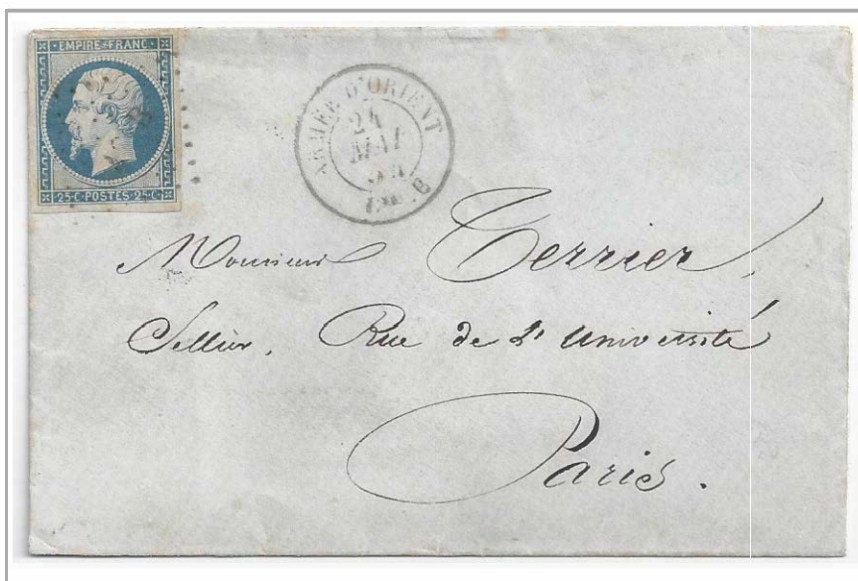 EMPIRE FRANC
25·C·POSTES·25·C
ARMÉE D'ORIENT
24
MAI
Monsieur Terrier,
Sellier, Rue de L'Université
Paris.